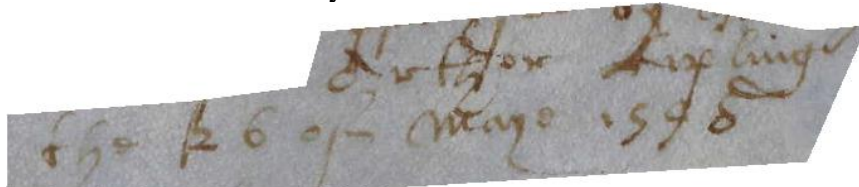 Arthor Kiplinge
the 26 of Maye 1598